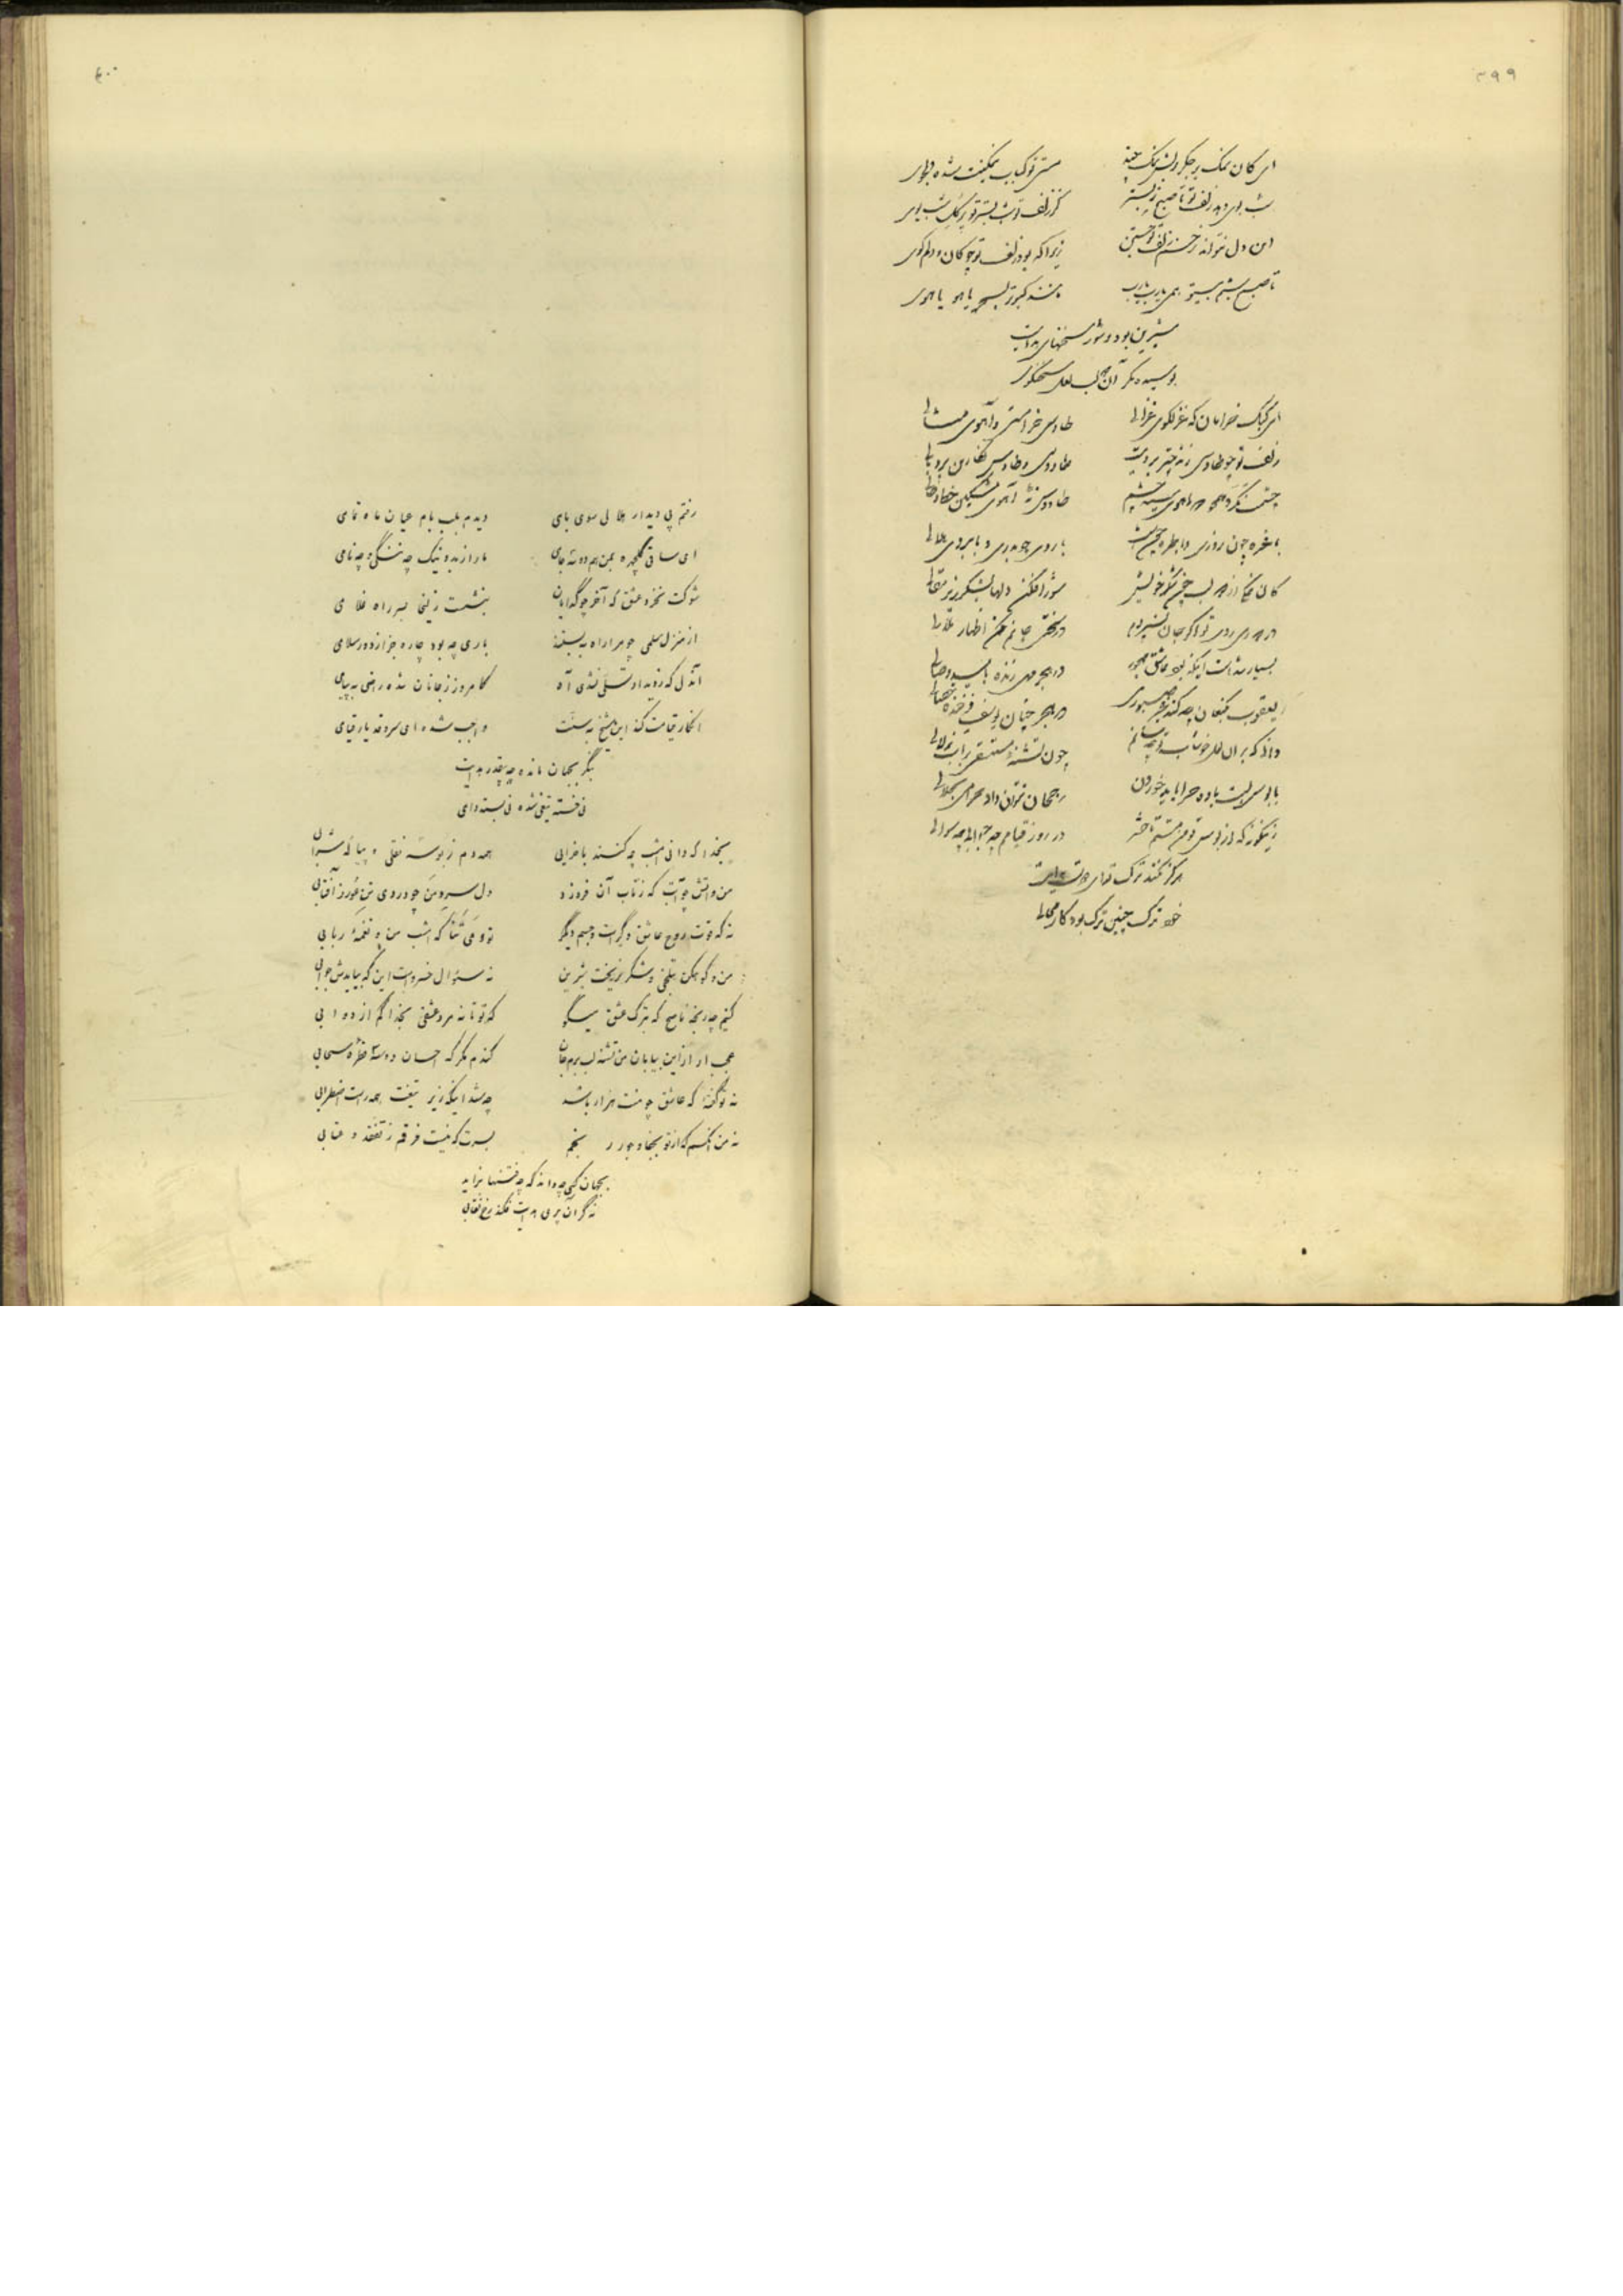 ۳۹۹
ای کان نمک بر جگر ریش نمک چند
مستی تو کباب نمکینت شده دلجوی
شب بوی دمد زلف تو تا صبح ز بستر
کز زلف تو شب بستر تو پر گل شب بوی
این دل نتواند ز خم زلف تو جستن
زیرا که بود زلف تو چوگان و دلم گوی
تا صبح بی تو همی یارب یارب
مانند کبوتر یاهو یاهوی
شیرین بود و شور سخنهای هدایت
بوسیده مگر آن لب لعل سخنگوی
ای کبک خرامان که غزلگوی غزالی
طاوس خرامستی و آهوی مثالی
زلف تو چو طاوس زند چتر برویت
طاوسی و طاوس نگارین پر و بالی
چشمت نگرد همچو آهوی سیه چشم
طاوس نه آهوی مشکین خط و خالی
با غره چون روزی و با طره چون شب
با روی چو بدری و با ابروی هلالی
کان نمک از لب شکر خویش
شور افکن دلها بشکر ریز مقالی
بسیار شد است اینکه بود عاشق مهجور
در هجر همی زنده بامید وصالی
یعقوب بکنعان چه کند صبوری
در هجر چنان یوسف فرخنده خصالی
دانی که بر آن لعل خوشاب تو چه مانم
چون تشنه مستسقی بر آب زلالی
با بوس لبت باده چرا باید خوردن
رجحان نتوان داد حرامی بحلالی
زینگونه که از بوس تو من مستم تا حشر
در روز قیامم چه جوابی چه سوالی
هرگز نکند ترک تو ای دوست هدایت
خود ترک چنین ترک بود کار محالی
۴۰۰
رفتم پی دیدار هلالی سوی بامی
دیدم بلب بام عیان ماه تمامی
ای ساقی گلچهره بمن هم دو سه جامی
ما را ز بد و نیک چه ننگی و چه نامی
شوکت نخرد عشق که آخر چو گدایان
بنشست زلیخا بسر راه غلامی
از منزل سلمی چو مرا راه ببستند
باری چه بود چاره جز از دور سلامی
آندل که ز دیدار تسلی نشدی آه
کامروز ز جانان شده راضی به پیامی
انکار قیامت کند این شیخ به سنت
واجب شده ای سرو قد یار قیامی
بنگر بجهان مانده چه بیقدر هدایت
نی خسته تیغی شده نی بسته دامی
بخدا که دانی امشب چه کنند با خرابی
همه دم ز بوسه نقلی و پیاله شرابی
من و آتش چو آبت که ز تاب آن فروزد
دل سرد من چو در روی تن عور ز آفتابی
تو و می شنا که امشب من و نغمه ربابی
نه که قوت روح عاشق دگر است و جسم دیگر
من و کوهکن بتلخی و شکر بریخت شیرین
نه سؤال خسرو است این که بیایدش جوابی
کنم چه رنجه ناصح که بترک عشق میگو
که تو تا نه مرد عشقی بخدا کم از دوابی
عجب ار ازین بیابان من تشنه لب برم جان
کندم مگر که احسان دو سه قطره سحابی
نه تو گفته که عاشق چو منت هزار باشد
چه شد اینکه زیر تیغت همه راست اضطرابی
نه من آنکسم که از تو بجفا و جور رنجم
بسرت که نیست فرقم ز تفقد و عتابی
بجهان کسی چه داند که چه فتنها بزاید
نه گر آن پری هدایت فکند برخ نقابی